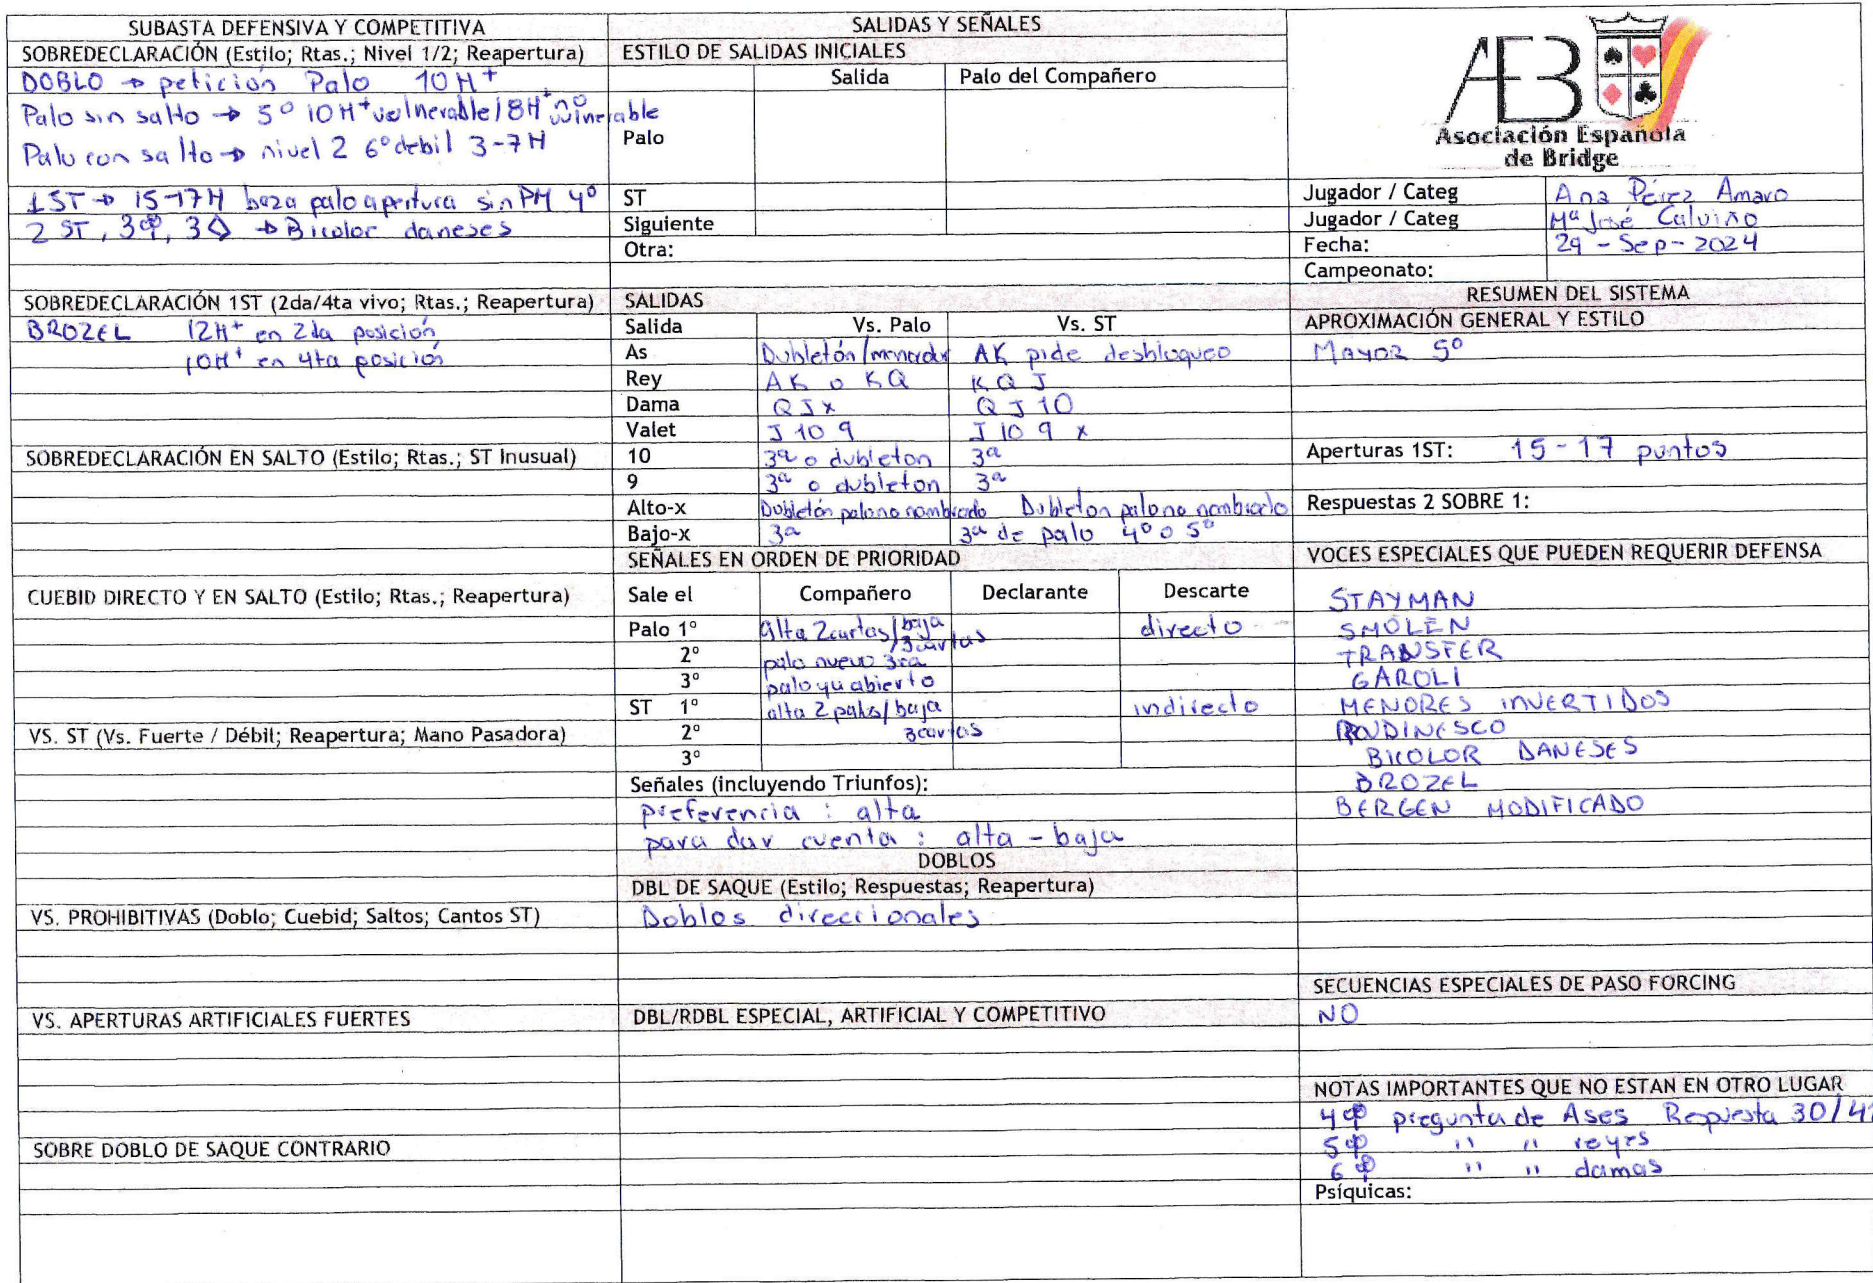 SUBASTA DEFENSIVA Y COMPETITIVA
SOBREDECLARACIÓN (Estilo; Rtas.; Nivel 1/2; Reapertura)
DOBLO → petición Palo 10H+
Palo sin salto → 5º 10H+ vulnerable / 8H+ no vulnerable
Palo con salto → nivel 2 6º debil 3-7H
1ST → 15-17H baza palo apertura sin PM 4º
2 ST, 3♣, 3♢ → Bicolor daneses
SOBREDECLARACIÓN 1ST (2da/4ta vivo; Rtas.; Reapertura)
BROZEL 12H+ en 2da posición
10H+ en 4ta posición
SOBREDECLARACIÓN EN SALTO (Estilo; Rtas.; ST Inusual)
CUEBID DIRECTO Y EN SALTO (Estilo; Rtas.; Reapertura)
VS. ST (Vs. Fuerte / Débil; Reapertura; Mano Pasadora)
VS. PROHIBITIVAS (Doblo; Cuebid; Saltos; Cantos ST)
VS. APERTURAS ARTIFICIALES FUERTES
SOBRE DOBLO DE SAQUE CONTRARIO
SALIDAS Y SEÑALES
ESTILO DE SALIDAS INICIALES
Salida Palo del Compañero
Palo
ST
Siguiente
Otra:
SALIDAS
Salida Vs. Palo Vs. ST
As Dubletón/ AK pide desbloqueo
Rey AK o KQ KQJ
Dama QJx QJ10
Valet J109 J109x
10 3ª o dubleton 3ª
9 3ª o dubleton 3ª
Alto-x Dubletón palo no nombrado Dubleton palo no nombrado
Bajo-x 3ª 3ª de palo 4º o 5º
SEÑALES EN ORDEN DE PRIORIDAD
Sale el Compañero Declarante Descarte
Palo 1º Alta 2cartas/baja 3cartas directo
2º palo nuevo 3ra
3º palo ya abierto
ST 1º alta 2 palos/baja indirecto
2º 3cartas
3º
Señales (incluyendo Triunfos):
preferencia : alta
para dar cuenta : alta - baja
DOBLOS
DBL DE SAQUE (Estilo; Respuestas; Reapertura)
Doblos direccionales
DBL/RDBL ESPECIAL, ARTIFICIAL Y COMPETITIVO
AEB
Asociación Española
de Bridge
Jugador / Categ Ana Pérez Amaro
Jugador / Categ Mª José Calviño
Fecha: 29 - Sep - 2024
Campeonato:
RESUMEN DEL SISTEMA
APROXIMACIÓN GENERAL Y ESTILO
MAYOR 5º
Aperturas 1ST: 15-17 puntos
Respuestas 2 SOBRE 1:
VOCES ESPECIALES QUE PUEDEN REQUERIR DEFENSA
STAYMAN
SMOLEN
TRANSFER
GAROLI
MENORES INVERTIDOS
ROUDINESCO
BICOLOR DANESES
BROZEL
BERGEN MODIFICADO
SECUENCIAS ESPECIALES DE PASO FORCING
NO
NOTAS IMPORTANTES QUE NO ESTAN EN OTRO LUGAR
4♣ pregunta de Ases Respuesta 30/41
5♣ " " reyes
6♣ " " damas
Psíquicas: